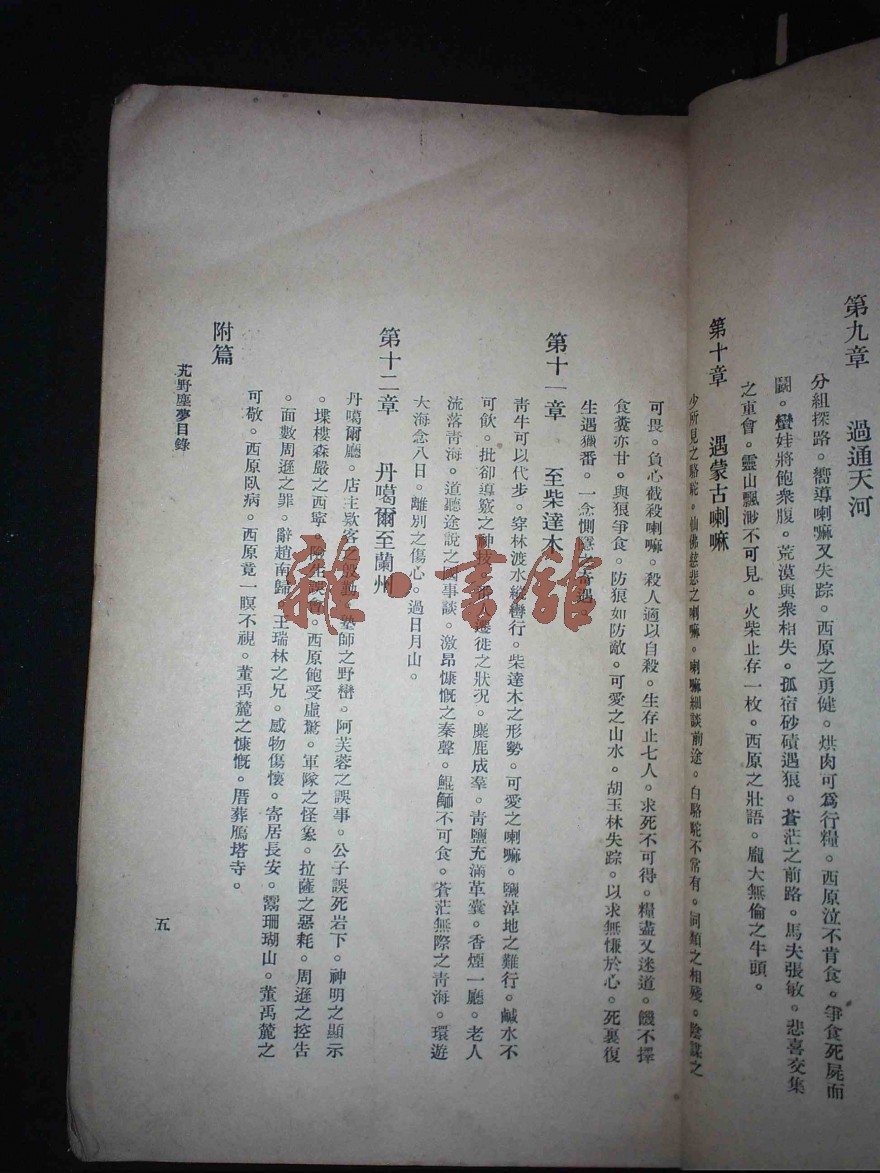 第九章　過通天河
分組探路。嚮導喇嘛又失踪。西原之勇健。烘肉可爲行糧。西原泣不肯食。爭食死屍而
鬭。蠻娃將飽衆腹。荒漠與衆相失。孤宿砂磧遇狼。蒼茫之前路。馬夫張敏。悲喜交集
之重會。靈山飄渺不可見。火柴止存一枚。西原之壯語。龐大無倫之牛頭。
第十章　遇蒙古喇嘛
少所見之駱駝。仙佛慈悲之喇嘛。喇嘛細談前途。白駱駝不常有。同類之相殘。陰謀之
可畏。負心截殺喇嘛。殺人適以自殺。生存止七人。求死不可得。糧盡又迷道。饑不擇
食糞亦甘。與狼爭食。防狼如防敵。可愛之山水。胡玉林失踪。以求無慊於心。死裏復
生遇獵番。一念惻隱之奇遇
第十一章　至柴達木
靑牛可以代步。穿林渡水縱轡行。柴達木之形勢。可愛之喇嘛。鹽淖地之難行。鹹水不
可飲。批卻導窾之神技。部人遷徙之狀况。麋鹿成羣。靑鹽充滿革囊。香煙一廳。老人
流落靑海。道聽途說之國事談。激昂慷慨之秦聲。鯤鰤不可食。蒼茫無際之靑海。環遊
大海念八日。離別之傷心。過日月山。
第十二章　丹噶爾至蘭州
丹噶爾廳。店主欵客之殷勤。塾師之野巒。阿芙蓉之誤事。公子誤死岩下。神明之顯示
。堞樓森嚴之西寧。西原飽受虛驚。軍隊之怪象。拉薩之惡耗。周遜之控告
。面數周遜之罪。辭趙南歸。王瑞林之兄。感物傷懷。寄居長安。鬻珊瑚山。董禹麓之
可敬。西原臥病。西原竟一瞑不視。董禹麓之慷慨。厝葬鴈塔寺。
附篇
艽野塵夢目錄
五
雜·書館